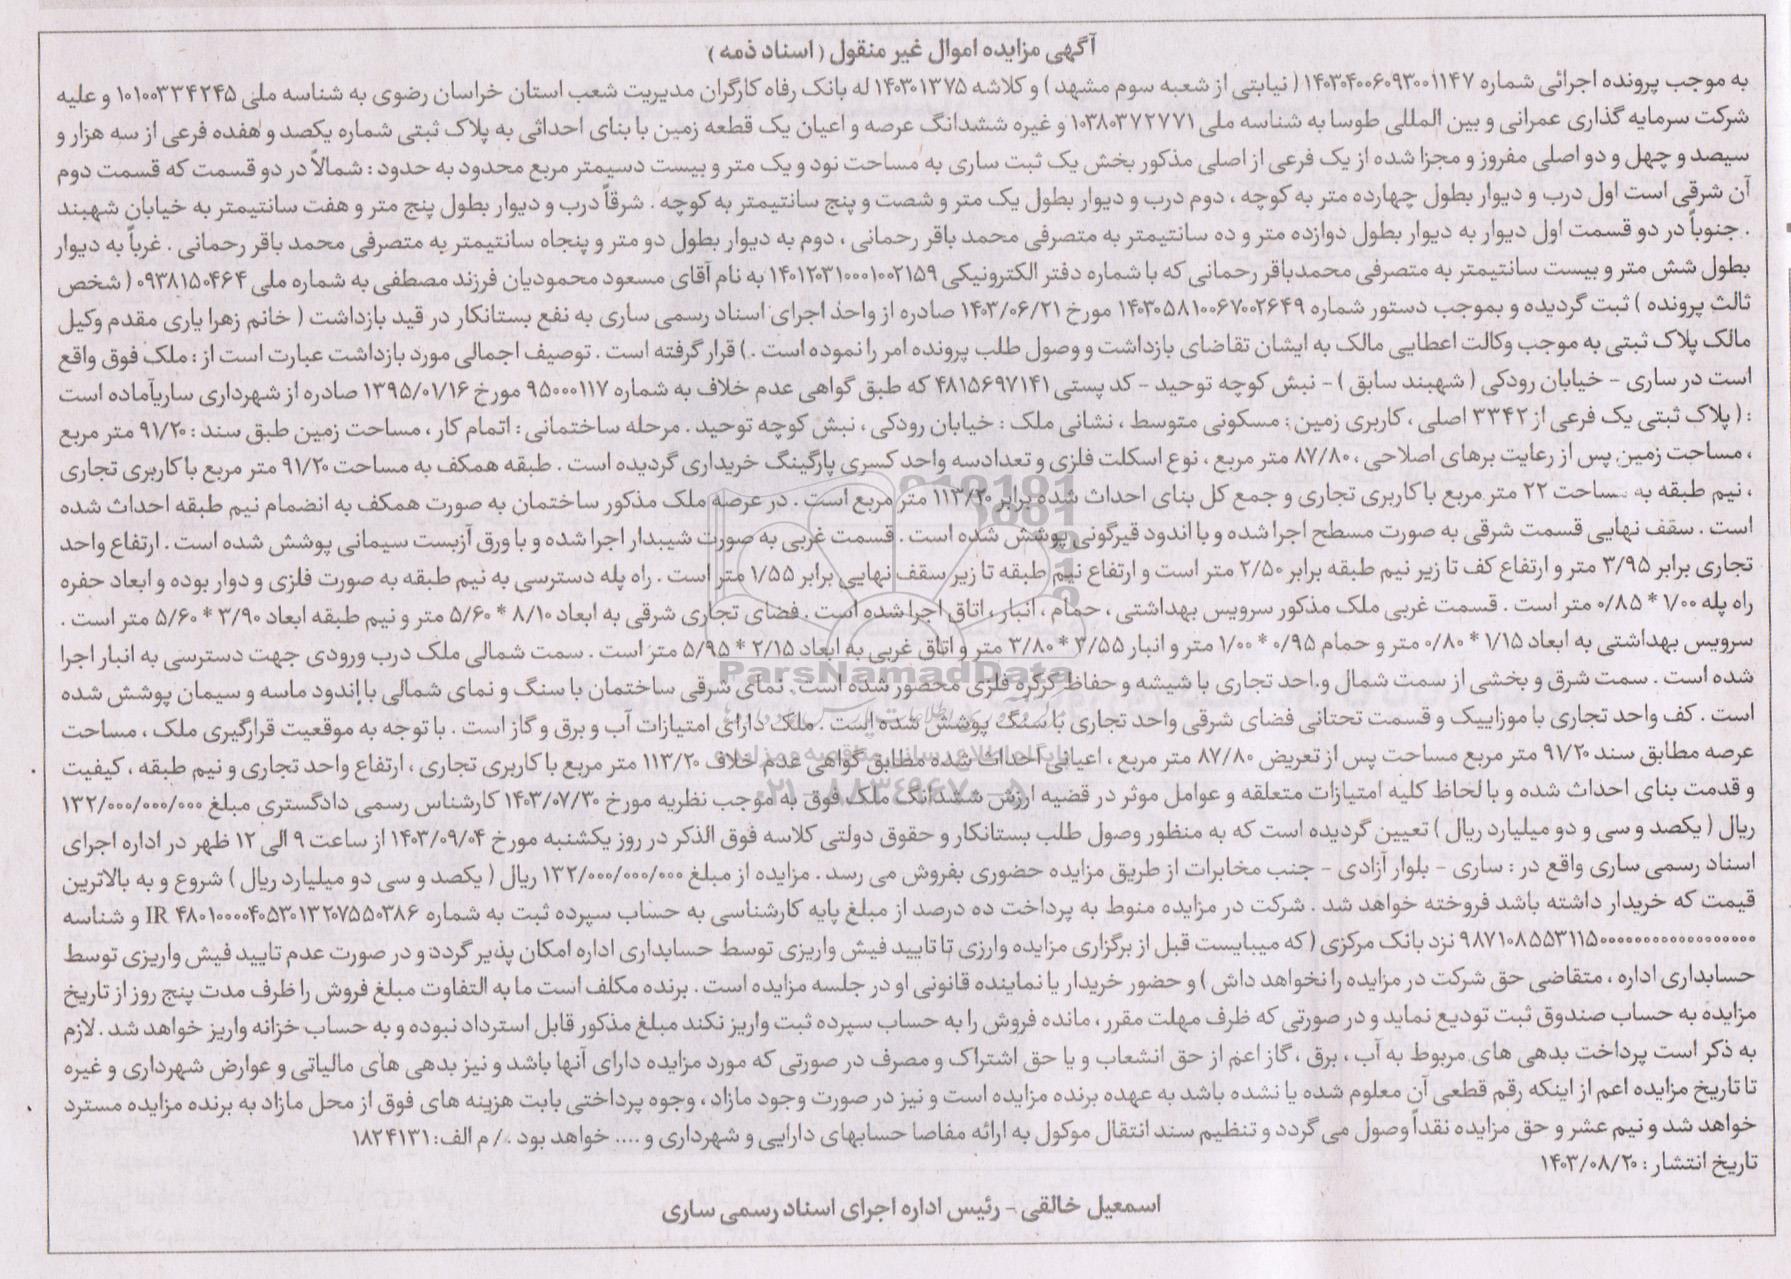 آگهی مزایده اموال غیر منقول ( اسناد ذمه )
به موجب پرونده اجرائی شماره ۱۴۰۳۰۴۰۰۶۰۹۳۰۰۱۱۴۷ ( نیابتی از شعبه سوم مشهد ) و کلاشه ۱۴۰۳۰۱۳۷۵ له بانک رفاه کارگران مدیریت شعب استان خراسان رضوی به شناسه ملی ۱۰۱۰۰۳۳۴۲۴۵ و علیه
شرکت سرمایه گذاری عمرانی و بین المللی طوسا به شناسه ملی ۱۰۳۸۰۳۷۲۷۷۱ و غیره ششدانگ عرصه و اعیان یک قطعه زمین با بنای احداثی به پلاک ثبتی شماره یکصد و هفده فرعی از سه هزار و
سیصد و چهل و دو اصلی مفروز و مجزا شده از یک فرعی از اصلی مذکور بخش یک ثبت ساری به مساحت نود و یک متر و بیست دسیمتر مربع محدود به حدود : شمالاً در دو قسمت که قسمت دوم
آن شرقی است اول درب و دیوار بطول چهارده متر به کوچه ، دوم درب و دیوار بطول یک متر و شصت و پنج سانتیمتر به کوچه . شرقاً درب و دیوار بطول پنج متر و هفت سانتیمتر به خیابان شهبند
. جنوباً در دو قسمت اول دیوار به دیوار بطول دوازده متر و ده سانتیمتر به متصرفی محمد باقر رحمانی ، دوم به دیوار بطول دو متر و پنجاه سانتیمتر به متصرفی محمد باقر رحمانی . غرباً به دیوار
بطول شش متر و بیست سانتیمتر به متصرفی محمدباقر رحمانی که با شماره دفتر الکترونیکی ۱۴۰۱۲۰۳۱۰۰۰۱۰۰۲۱۵۹ به نام آقای مسعود محمودیان فرزند مصطفی به شماره ملی ۰۹۳۸۱۵۰۴۶۴ ( شخص
ثالث پرونده ) ثبت گردیده و بموجب دستور شماره ۱۴۰۳۰۵۸۱۰۰۶۷۰۰۲۶۴۹ مورخ ۱۴۰۳/۰۶/۲۱ صادره از واحد اجرای اسناد رسمی ساری به نفع بستانکار در قید بازداشت ( خانم زهرا یاری مقدم وکیل
مالک پلاک ثبتی به موجب وکالت اعطایی مالک به ایشان تقاضای بازداشت و وصول طلب پرونده امر را نموده است . ) قرار گرفته است . توصیف اجمالی مورد بازداشت عبارت است از : ملک فوق واقع
است در ساری - خیابان رودکی ( شهبند سابق ) - نبش کوچه توحید - کد پستی ۴۸۱۵۶۹۷۱۴۱ که طبق گواهی عدم خلاف به شماره ۹۵۰۰۰۱۱۷ مورخ ۱۳۹۵/۰۱/۱۶ صادره از شهرداری ساریآماده است
: ( پلاک ثبتی یک فرعی از ۳۳۴۲ اصلی ، کاربری زمین : مسکونی متوسط ، نشانی ملک : خیابان رودکی ، نبش کوچه توحید . مرحله ساختمانی : اتمام کار ، مساحت زمین طبق سند : ۹۱/۲۰ متر مربع
، مساحت زمین پس از رعایت برهای اصلاحی ، ۸۷/۸۰ متر مربع ، نوع اسکلت فلزی و تعدادسه واحد کسری پارگینگ خریداری گردیده است . طبقه همکف به مساحت ۹۱/۲۰ متر مربع با کاربری تجاری
، نیم طبقه به مساحت ۲۲ متر مربع با کاربری تجاری و جمع کل بنای احداث شده برابر ۱۱۳/۲۰ متر مربع است . در عرصه ملک مذکور ساختمان به صورت همکف به انضمام نیم طبقه احداث شده
است . سقف نهایی قسمت شرقی به صورت مسطح اجرا شده و با اندود قیرگونی پوشش شده است . قسمت غربی به صورت شیبدار اجرا شده و با ورق آزبست سیمانی پوشش شده است . ارتفاع واحد
تجاری برابر ۳/۹۵ متر و ارتفاع کف تا زیر نیم طبقه برابر ۲/۵۰ متر است و ارتفاع نیم طبقه تا زیر سقف نهایی برابر ۱/۵۵ متر است . راه پله دسترسی به نیم طبقه به صورت فلزی و دوار بوده و ابعاد حفره
راه پله ۱/۰۰ * ۰/۸۵ متر است . قسمت غربی ملک مذکور سرویس بهداشتی ، حمام ، انبار ، اتاق اجرا شده است . فضای تجاری شرقی به ابعاد ۸/۱۰ * ۵/۶۰ متر و نیم طبقه ابعاد ۳/۹۰ * ۵/۶۰ متر است .
سرویس بهداشتی به ابعاد ۱/۱۵ * ۰/۸۰ متر و حمام ۰/۹۵ * ۱/۰۰ متر و انبار ۳/۵۵ * ۳/۸۰ متر و اتاق غربی به ابعاد ۲/۱۵ * ۵/۹۵ متر است . سمت شمالی ملک درب ورودی جهت دسترسی به انبار اجرا
شده است . سمت شرق و بخشی از سمت شمال واحد تجاری با شیشه و حفاظ کرکره فلزی محصور شده است . نمای شرقی ساختمان با سنگ و نمای شمالی با اندود ماسه و سیمان پوشش شده
است . کف واحد تجاری با موزاییک و قسمت تحتانی فضای شرقی واحد تجاری با سنگ پوشش شده است . ملک دارای امتیازات آب و برق و گاز است . با توجه به موقعیت قرارگیری ملک ، مساحت
عرصه مطابق سند ۹۱/۲۰ متر مربع مساحت پس از تعریض ۸۷/۸۰ متر مربع ، اعیانی احداث شده مطابق گواهی عدم خلاف ۱۱۳/۲۰ متر مربع با کاربری تجاری ، ارتفاع واحد تجاری و نیم طبقه ، کیفیت
و قدمت بنای احداث شده و با لحاظ کلیه امتیازات متعلقه و عوامل موثر در قضیه ارزش ششدانگ ملک فوق به موجب نظریه مورخ ۱۴۰۳/۰۷/۳۰ کارشناس رسمی دادگستری مبلغ ۱۳۲/۰۰۰/۰۰۰/۰۰۰
ریال ( یکصد و سی و دو میلیارد ریال ) تعیین گردیده است که به منظور وصول طلب بستانکار و حقوق دولتی کلاسه فوق الذکر در روز یکشنبه مورخ ۱۴۰۳/۰۹/۰۴ از ساعت ۹ الی ۱۲ ظهر در اداره اجرای
اسناد رسمی ساری واقع در : ساری - بلوار آزادی - جنب مخابرات از طریق مزایده حضوری بفروش می رسد . مزایده از مبلغ ۱۳۲/۰۰۰/۰۰۰/۰۰۰ ریال ( یکصد و سی دو میلیارد ریال ) شروع و به بالاترین
قیمت که خریدار داشته باشد فروخته خواهد شد . شرکت در مزایده منوط به پرداخت ده درصد از مبلغ پایه کارشناسی به حساب سپرده ثبت به شماره IR ۴۸۰۱۰۰۰۰۴۰۵۳۰۱۳۲۰۷۵۵۰۳۸۶ و شناسه
نزد بانک مرکزی ( که میبایست قبل از برگزاری مزایده وارزی تا تایید فیش واریزی توسط حسابداری اداره امکان پذیر گردد و در صورت عدم تایید فیش واریزی توسط
حسابداری اداره ، متقاضی حق شرکت در مزایده را نخواهد داش ) و حضور خریدار یا نماینده قانونی او در جلسه مزایده است . برنده مکلف است ما به التفاوت مبلغ فروش را ظرف مدت پنج روز از تاریخ
مزایده به حساب صندوق ثبت تودیع نماید و در صورتی که ظرف مهلت مقرر ، مانده فروش را به حساب سپرده ثبت واریز نکند مبلغ مذکور قابل استرداد نبوده و به حساب خزانه واریز خواهد شد . لازم
به ذکر است پرداخت بدهی های مربوط به آب ، برق ، گاز اعم از حق انشعاب و یا حق اشتراک و مصرف در صورتی که مورد مزایده دارای آنها باشد و نیز بدهی های مالیاتی و عوارض شهرداری و غیره
تا تاریخ مزایده اعم از اینکه رقم قطعی آن معلوم شده یا نشده باشد به عهده برنده مزایده است و نیز در صورت وجود مازاد ، وجوه پرداختی بابت هزینه های فوق از محل مازاد به برنده مزایده مسترد
خواهد شد و نیم عشر و حق مزایده نقداً وصول می گردد و تنظیم سند انتقال موکول به ارائه مفاصا حسابهای دارایی و شهرداری و .... خواهد بود ./ م الف: ۱۸۲۴۱۳۱
تاریخ انتشار : ۱۴۰۳/۰۸/۲۰
اسمعیل خالقی - رئیس اداره اجرای اسناد رسمی ساری
ParsNamadData